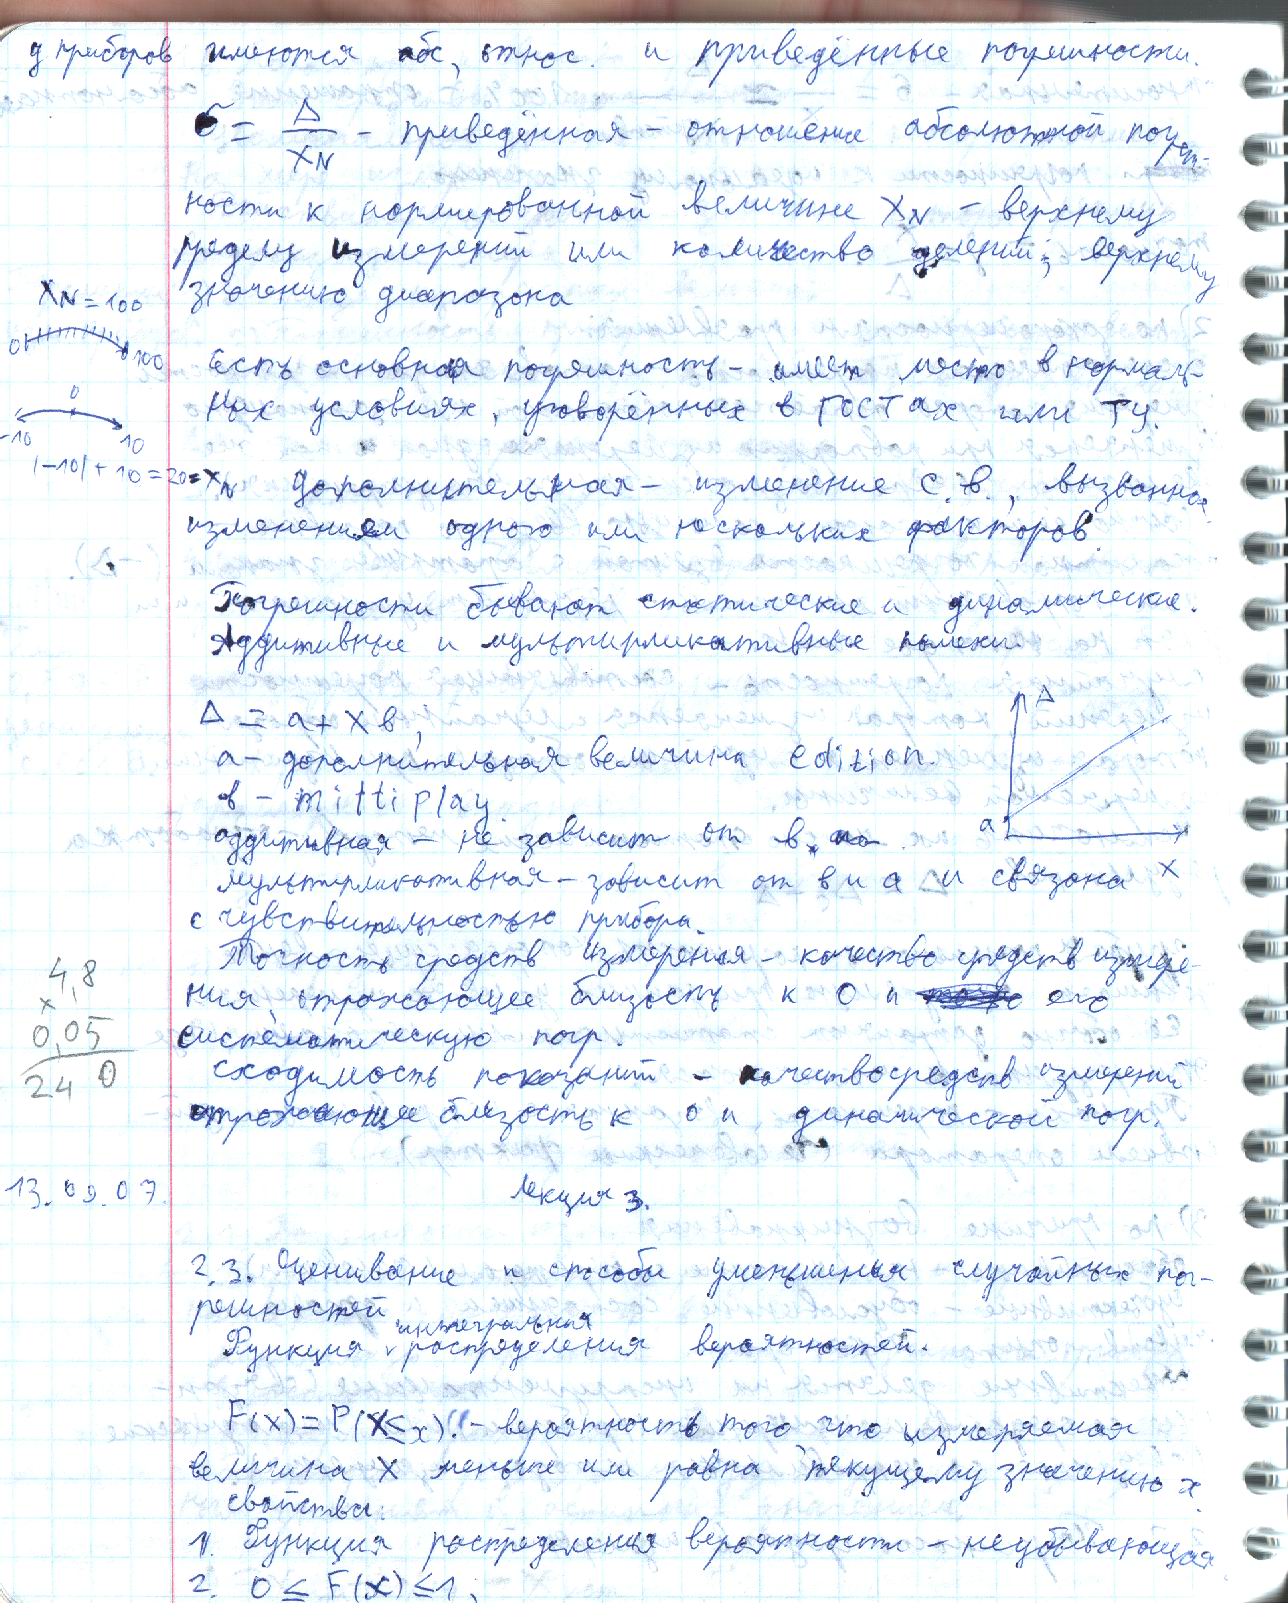 у приборов имеются абс, относ. и приведённые погрешности.
δ = Δ/X_N – приведённая – отношение абсолютной погреш-
ности к нормированной величине X_N – верхнему
пределу измерений или количество делений; верхнему
значению диапазона
X_N = 100
0 100
Есть основная погрешность – имеет место в нормаль-
ных условиях, уговорённых в ГОСТах или ТУ.
0
-10 10
|-10| + 10 = 20 = X_N
Дополнительная – изменение С.В., вызванное
изменением одного или нескольких факторов.
Погрешности бывают статические и динамические.
Аддитивные и мультипликативные помехи.
Δ = a + X в,
a – дополнительная величина edition.
в – mittiplay
аддитивная – не зависит от в.
мультипликативная – зависит от в и a и связана
с чувствительностью прибора.
Δ
a
X
Точность средств измерения – качество средств измере-
ния, отражающее близость к 0 и его
систематическую погр.
Сходимость показаний – качество средств измерений
отражающее близость к 0 и динамической погр.
4,8
×
0,05
24 0
13.09.07. Лекция 3.
2.3. Оценивание и способы уменьшения случайных пог-
решностей
Функция интегральная распределения вероятностей.
F(x) = P(X ≤ x) – вероятность того что измеряемая
величина X меньше или равна текущему значению x.
свойства.
1. Функция распределения вероятности – неубывающая
2. 0 ≤ F(x) ≤ 1;